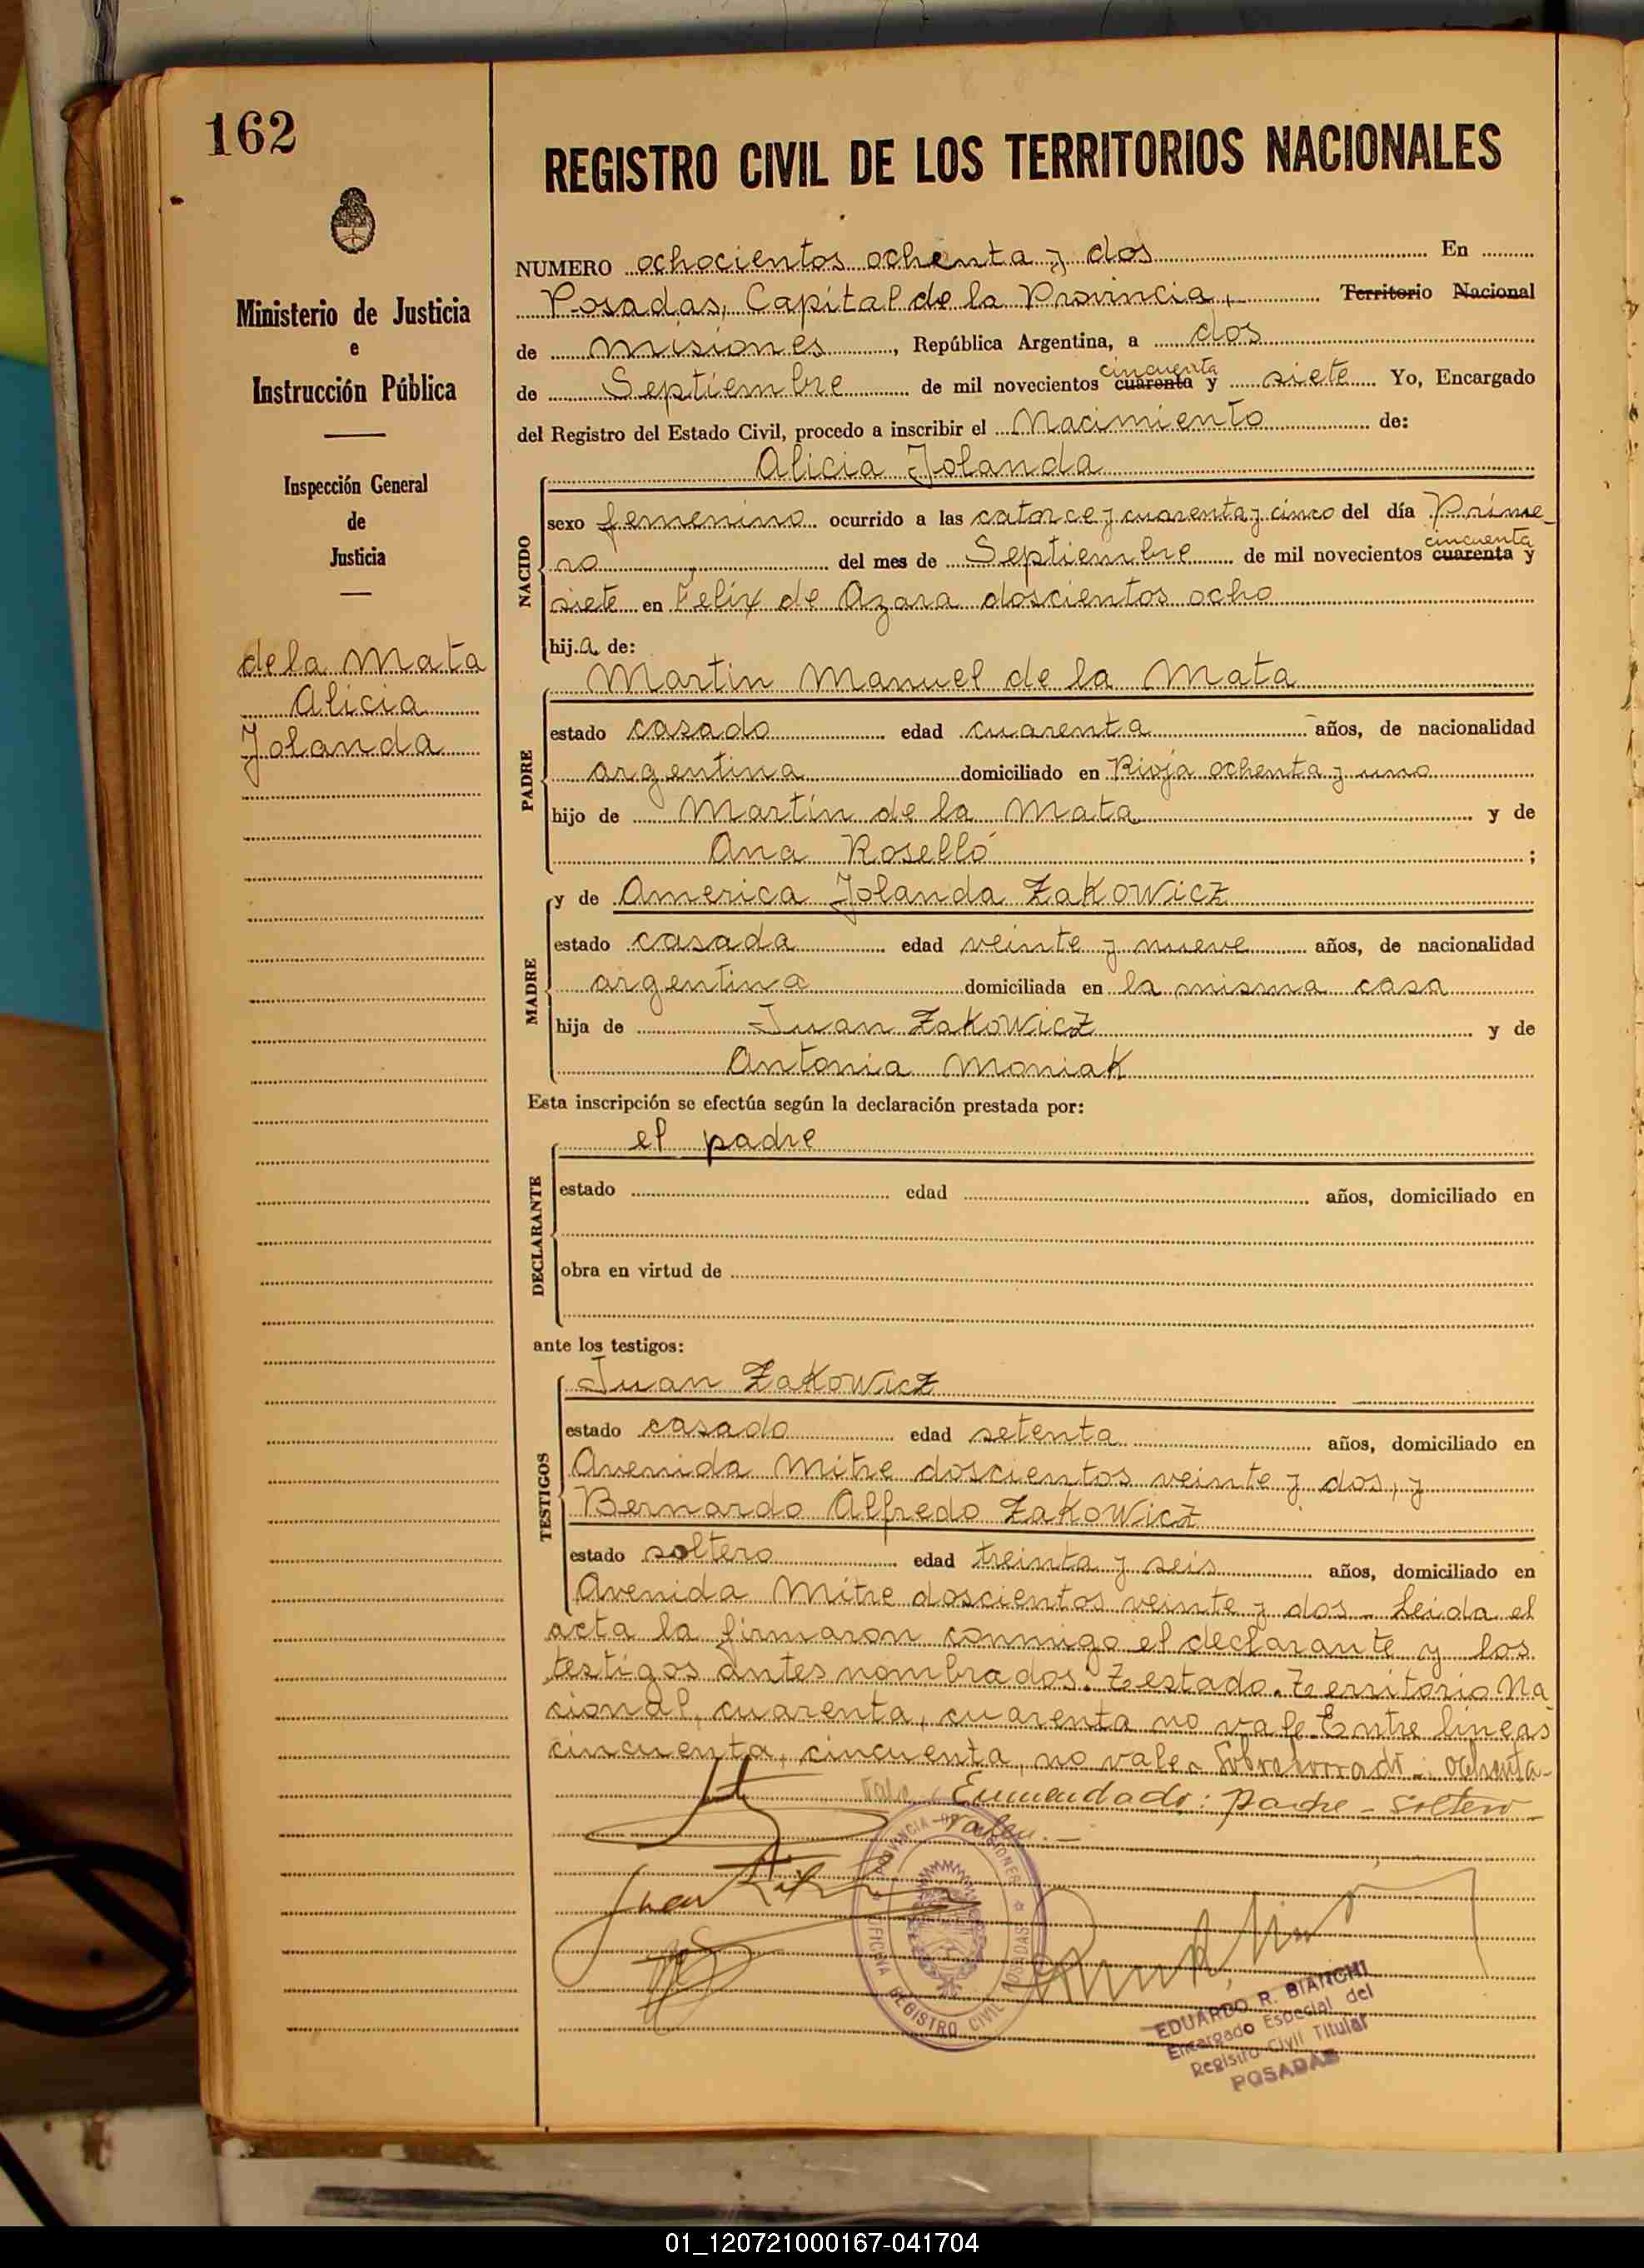 162
Ministerio de Justicia
e
Instrucción Pública
Inspección General
de
Justicia
de la Mata
Alicia
Jolanda
REGISTRO CIVIL DE LOS TERRITORIOS NACIONALES
NUMERO ochocientos ochenta y dos En
Posadas, Capital de la Provincia, Territorio Nacional
de Misiones, República Argentina, a dos
cincuenta
de Septiembre de mil novecientos cuarenta y siete Yo, Encargado
del Registro del Estado Civil, procedo a inscribir el Nacimiento de:
Alicia Jolanda
NACIDO
sexo femenino ocurrido a las catorce y cuarenta y cinco del día Prime-
cincuenta
ro del mes de Septiembre de mil novecientos cuarenta y
siete en Felix de Azara doscientos ocho
hija de:
Martin Manuel de la Mata
PADRE
estado casado edad cuarenta años, de nacionalidad
argentina domiciliado en Rioja ochenta y uno
hijo de Martín de la Mata y de
Ana Roselló ;
y de America Jolanda Zakowicz
MADRE
estado casada edad veinte y nueve años, de nacionalidad
argentina domiciliada en la misma casa
hija de Juan Zakowicz y de
Antonia Moniak
Esta inscripción se efectúa según la declaración prestada por:
el padre
DECLARANTE
estado edad años, domiciliado en
obra en virtud de
ante los testigos:
Juan Zakowicz
TESTIGOS
estado casado edad setenta años, domiciliado en
Avenida Mitre doscientos veinte y dos, y
Bernardo Alfredo Zakowicz
estado soltero edad treinta y seis años, domiciliado en
Avenida Mitre doscientos veinte y dos. Leida el
acta la firmaron conmigo el declarante y los
testigos antes nombrados. Testado. Territorio Na
cional, cuarenta, cuarenta no vale. Entre lineas
cincuenta, cincuenta, no vale. Sobreborrado: ochenta-
Vale. Enmendado: padre - soltero -
Valen.-
Juan
PROVINCIA DE MISIONES
OFICINA REGISTRO CIVIL POSADAS
EDUARDO R. BIANCHI
Encargado Especial del
Registro Civil Titular
POSADAS
01_120721000167-041704